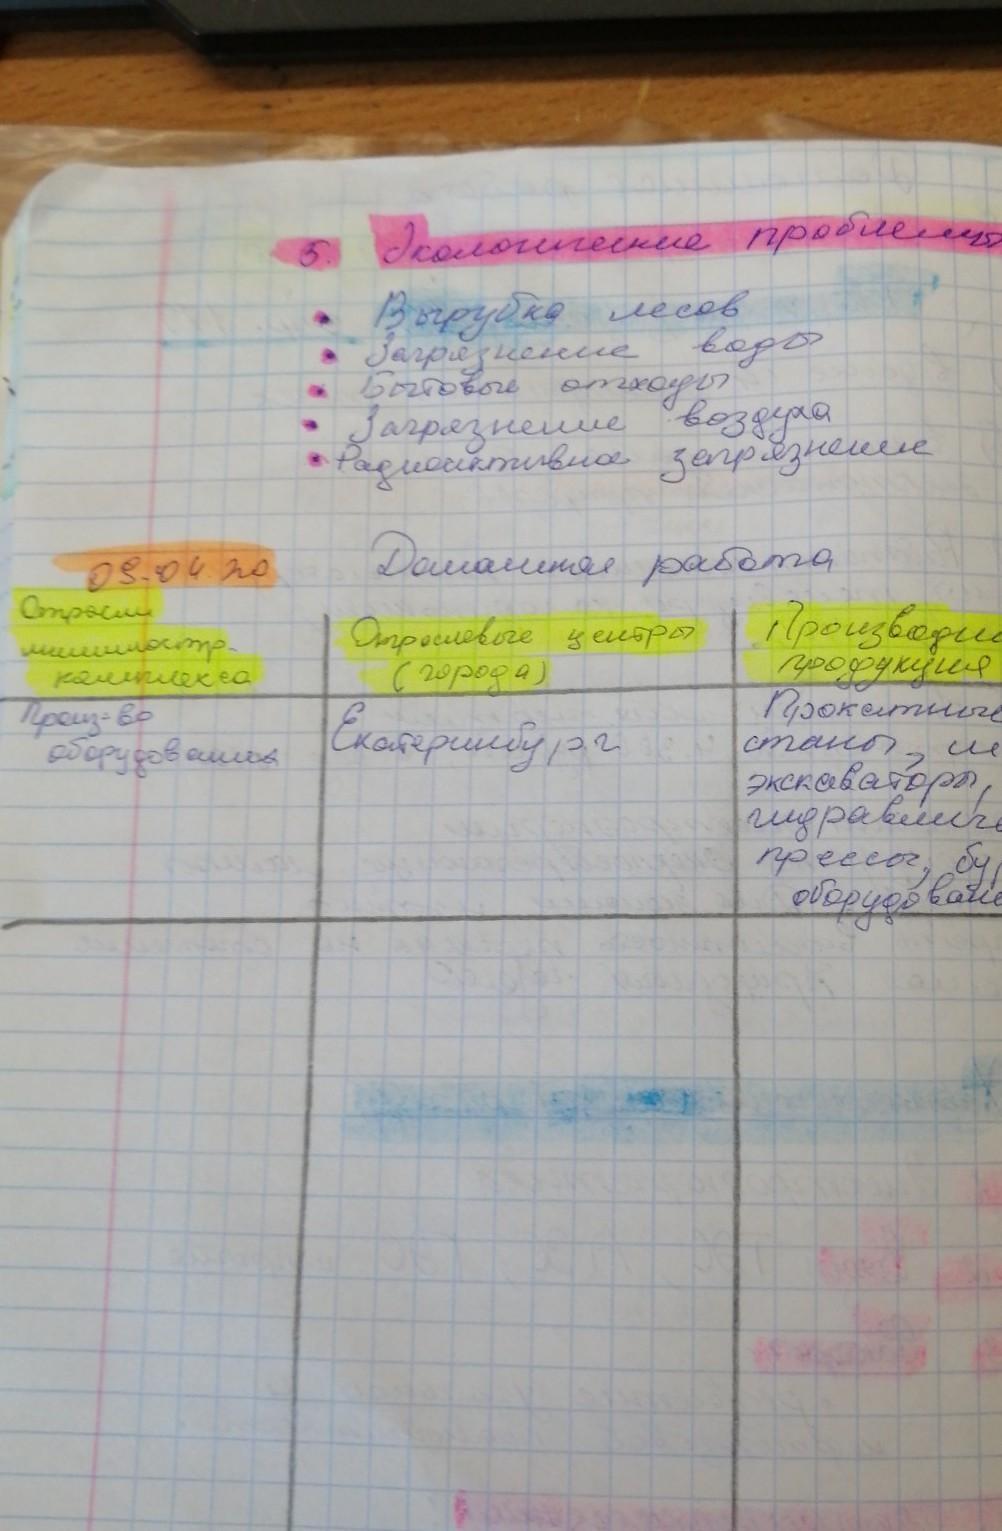 5. Экологические проблемы
• Вырубка лесов
• Загрязнение воды
• Бытовые отходы
• Загрязнение воздуха
• Радиоактивное загрязнение
09.04.20 Домашняя работа
Отрасли
машиностр.
комплекса
Отраслевые центры
(города)
Производи
продукция
Произ-во
оборудования
Екатеринбург
Прокатные
станы,
экскаваторы,
гидравличе
прессы, бу
оборудован